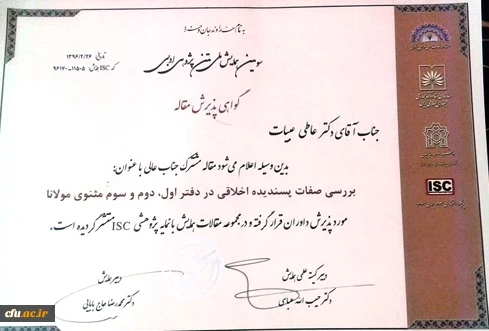 به نام خداوند جان و خرد
سومین همایش ملی متن پژوهی ادبی
تاریخ: ۱۳۹۶/۲/۲۶
کد ISC همایش: ۱۱۵۰۵-۹۶۱۷۰
گواهی پذیرش مقاله
جناب آقای دکتر عاطی عبیات
بدین وسیله اعلام می‌شود مقاله مشترک جناب عالی با عنوان:
بررسی صفات پسندیده اخلاقی در دفتر اول، دوم و سوم مثنوی مولانا
مورد پذیرش داوران قرار گرفته و در مجموعه مقالات همایش با نمایه پژوهشی ISC منتشر گردیده است.
دبیر کمیته علمی همایش
دکتر حبیب الله عباسی
دبیر همایش
دکتر محمدرضا حاج بابایی
ISC
cfu.ac.ir